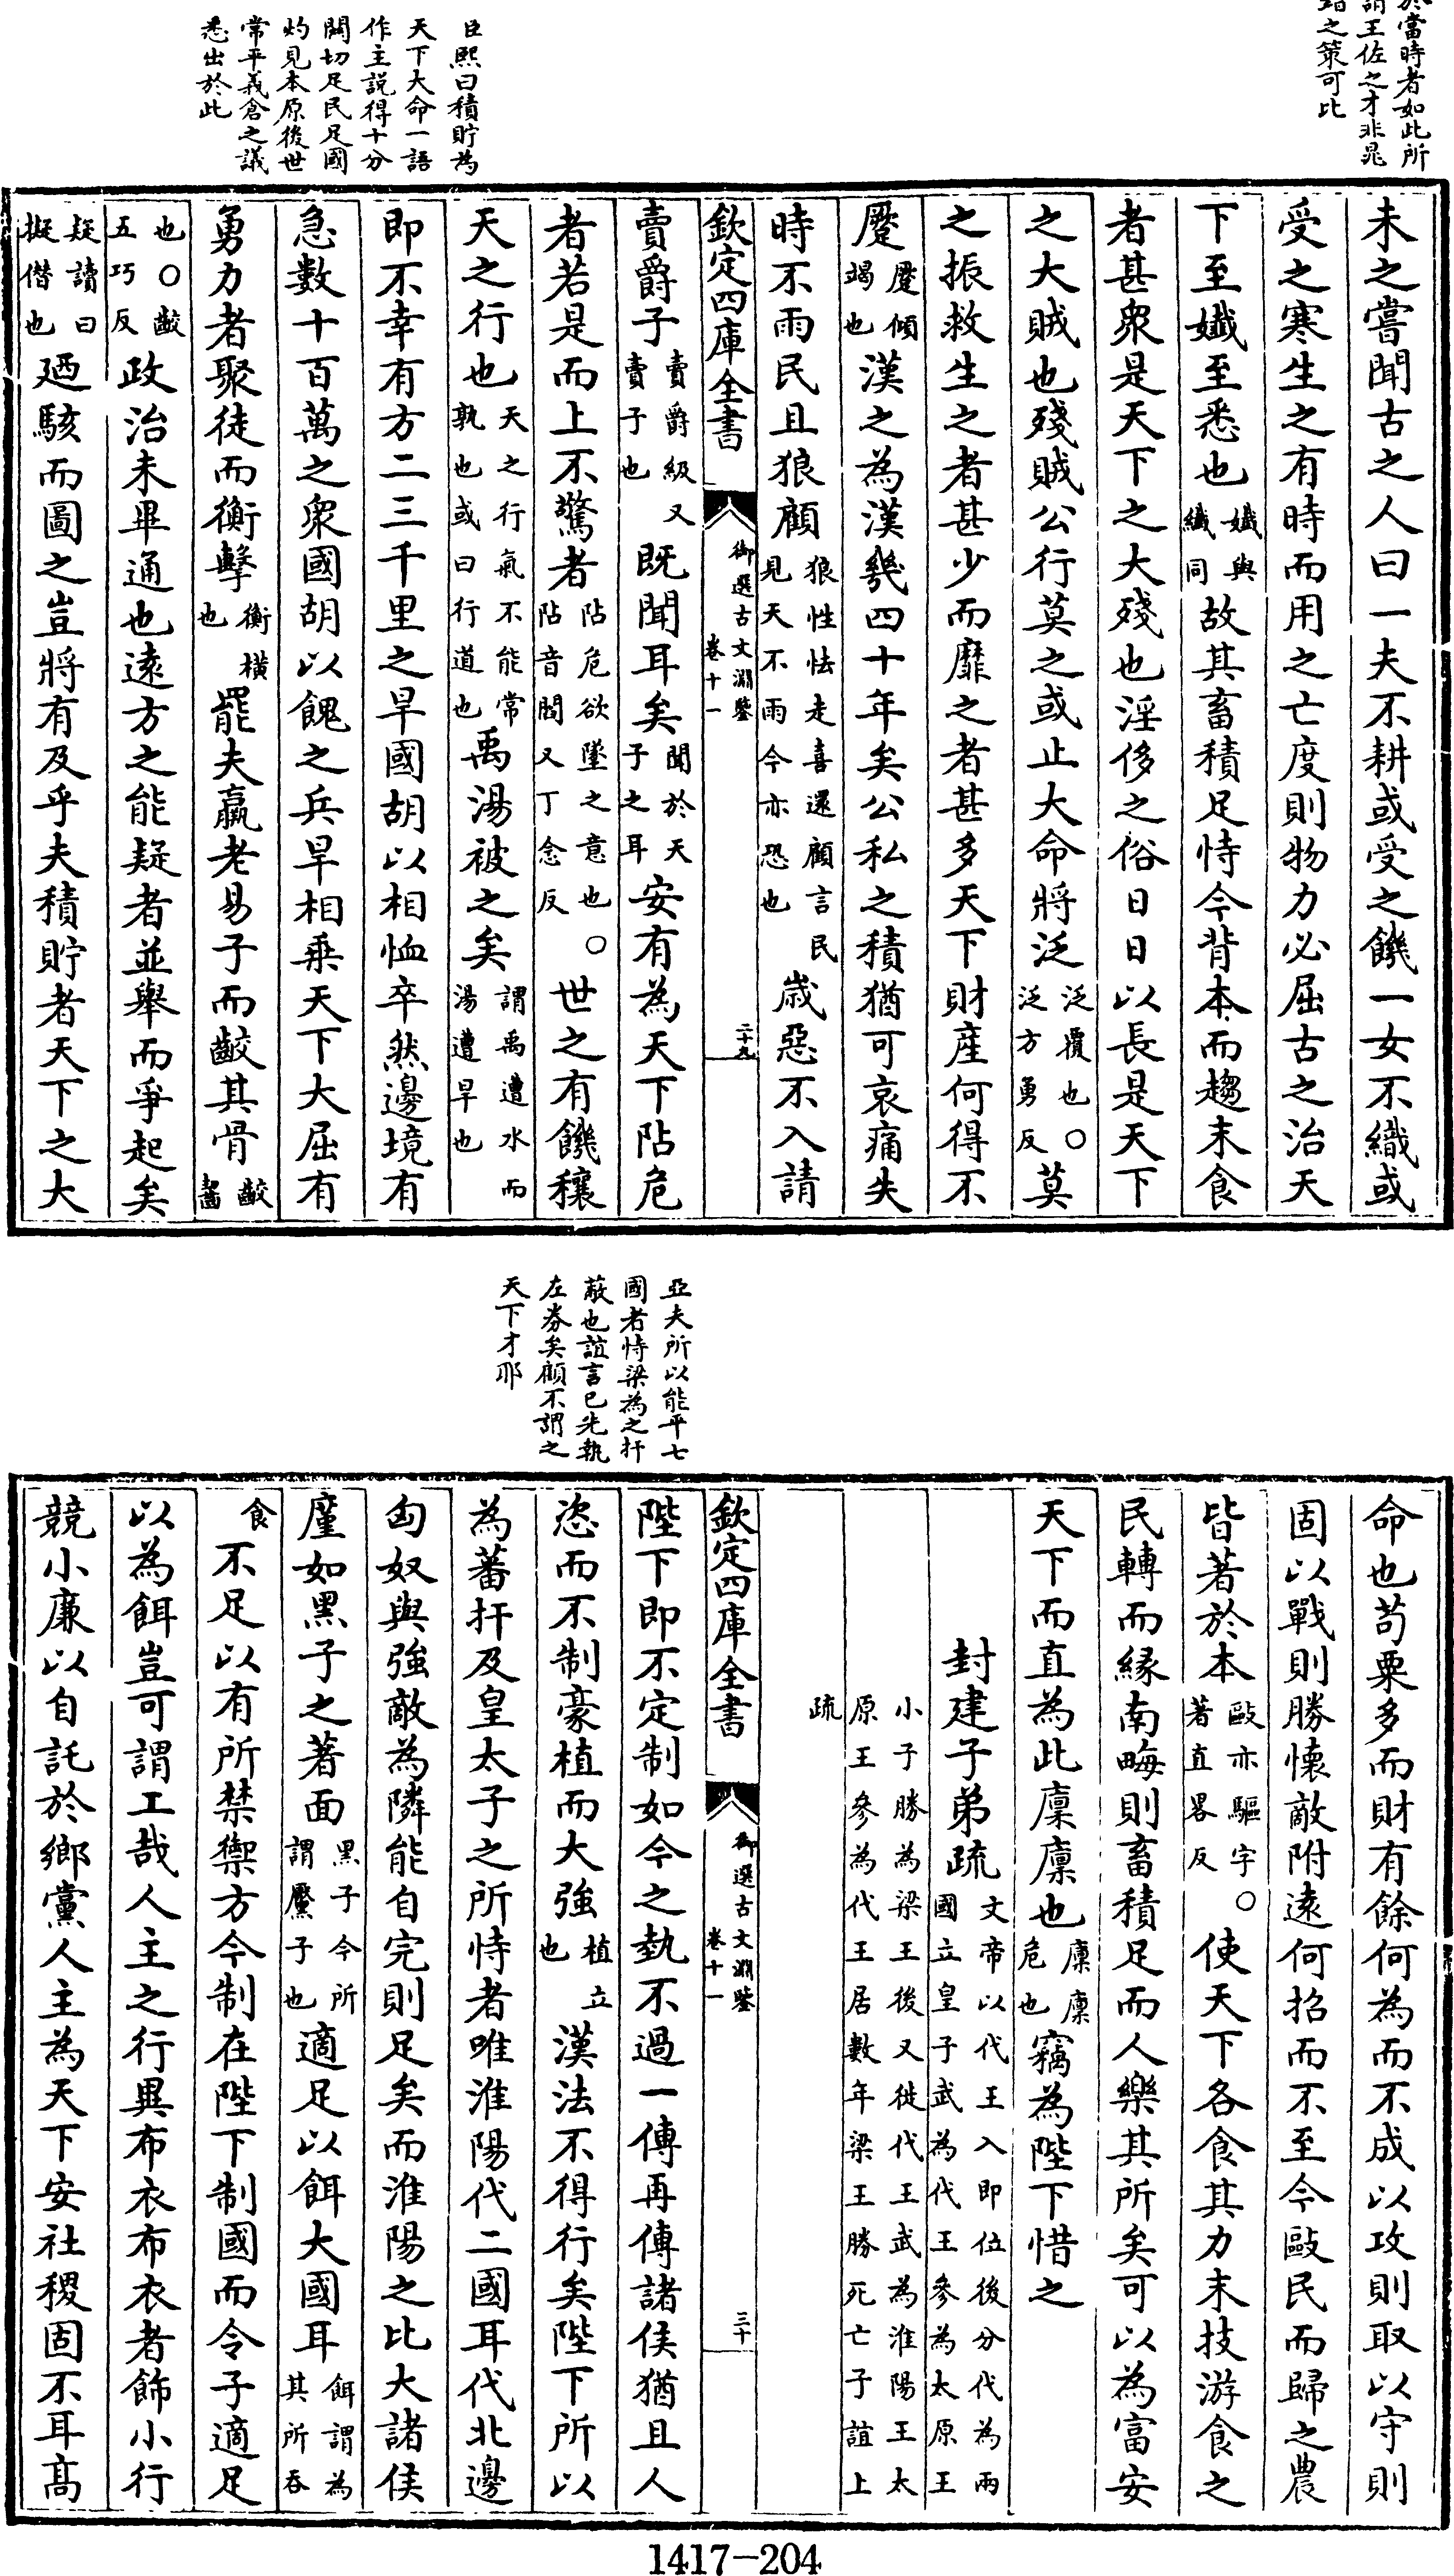 於當時者如此所
謂王佐之才非晁
錯之策可比
臣熙曰積貯為
天下大命一語
作主説得十分
關切足民足國
灼見本原後世
常平義倉之議
悉出於此
未之嘗聞古之人曰一夫不耕或受之饑一女不織或
受之寒生之有時而用之亡度則物力必屈古之治天
下至孅至悉也孅與纎同故其畜積足恃今背本而趨末食
者甚衆是天下之大殘也淫侈之俗日日以長是天下
之大賊也殘賊公行莫之或止大命將泛泛覆也○泛方勇反莫
之振救生之者甚少而靡之者甚多天下財産何得不
蹷蹷傾竭也漢之為漢幾四十年矣公私之積猶可哀痛失
時不雨民且狼顧狼性怯走喜還顧言民見天不雨今亦恐也歳惡不入請
欽定四庫全書
御選古文淵鑒
卷十一
二十九
賣爵子賣爵級又賣子也既聞耳矣聞於天子之耳安有為天下阽危
者若是而上不驚者阽危欲墜之意也○阽音閻又丁念反世之有饑穰
天之行也天之行氣不能常孰也或曰行道也禹湯被之矣謂禹遭水而湯遭旱也
即不幸有方二三千里之旱國胡以相恤卒然邊境有
急數十百萬之衆國胡以餽之兵旱相乗天下大屈有
勇力者聚徒而衡擊衡横也罷夫羸老易子而齩其骨齩齧
也○齩五巧反政治未畢通也遠方之能疑者並舉而爭起矣
疑讀曰擬僭也廼駭而圖之豈將有及乎夫積貯者天下之大
亞夫所以能平七
國者恃梁為之扞
蔽也誼言已先執
左券矣顧不謂之
天下才耶
命也苟粟多而財有餘何為而不成以攻則取以守則
固以戰則勝懐敵附遠何招而不至今敺民而歸之農
皆著於本敺亦驅字○著直畧反使天下各食其力末技游食之
民轉而緣南畮則畜積足而人樂其所矣可以為富安
天下而直為此廩廩也廩廩危也竊為陛下惜之
封建子弟疏文帝以代王入即位後分代為兩國立皇子武為代王參為太原王
小子勝為梁王後又徙代王武為淮陽王太原王參為代王居數年梁王勝死亡子誼上
疏
欽定四庫全書
御選古文淵鑒
卷十一
三十
陛下即不定制如今之埶不過一傳再傳諸侯猶且人
恣而不制豪植而大強植立也漢法不得行矣陛下所以
為蕃扞及皇太子之所恃者唯淮陽代二國耳代北邊
匈奴與強敵為隣能自完則足矣而淮陽之比大諸侯
廑如黒子之著面黒子今所謂黶子也適足以餌大國耳餌謂為其所吞
食不足以有所禁禦方今制在陛下制國而令子適足
以為餌豈可謂工哉人主之行異布衣布衣者飾小行
競小廉以自託於鄉黨人主為天下安社稷固不耳髙
1417-204